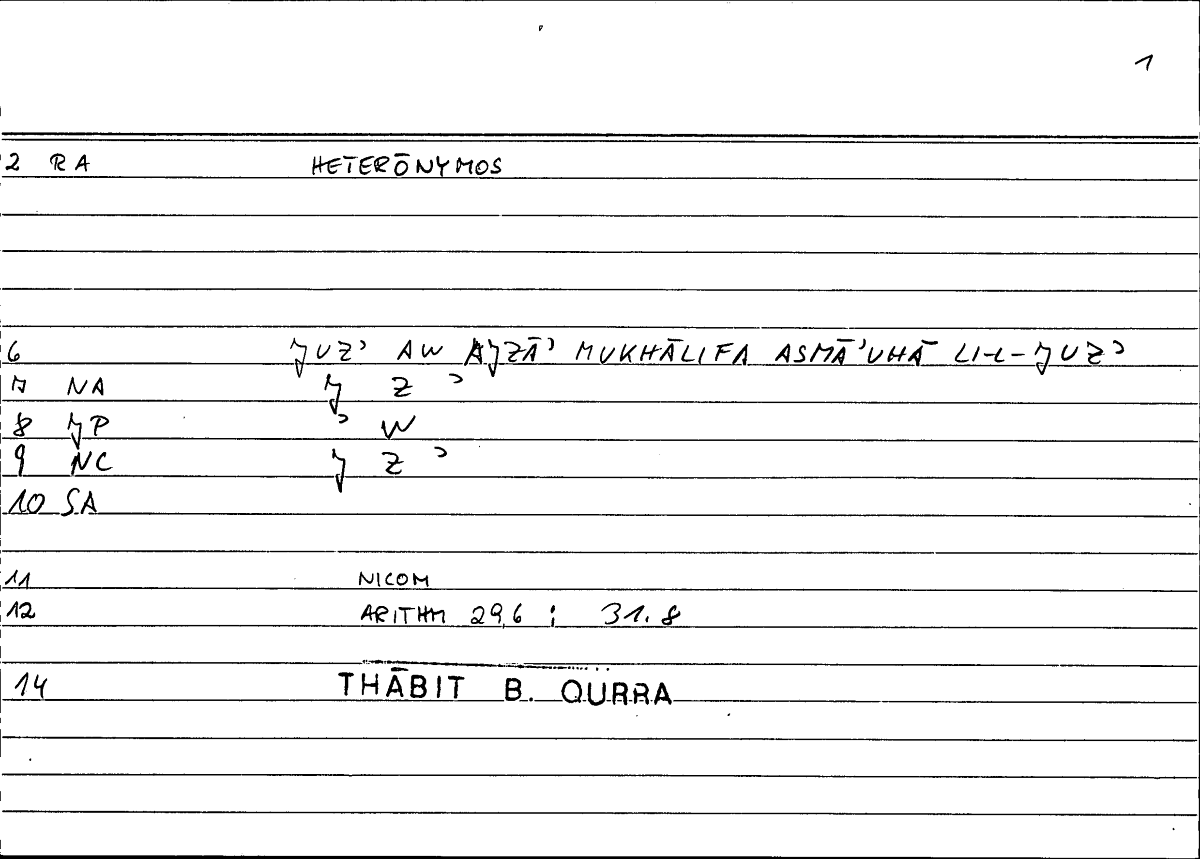 1
2 RA HETERŌNYMOS
6 JUZʾ AW AJZĀʾ MUKHĀLIFA ASMĀʾUHĀ LI-L-JUZʾ
7 NA J Z ʾ
8 JP ʾ W
9 NC J Z ʾ
10 SA
11 NICOM
12 ARITHM 29,6 ; 31.8
14 THĀBIT B. QURRA